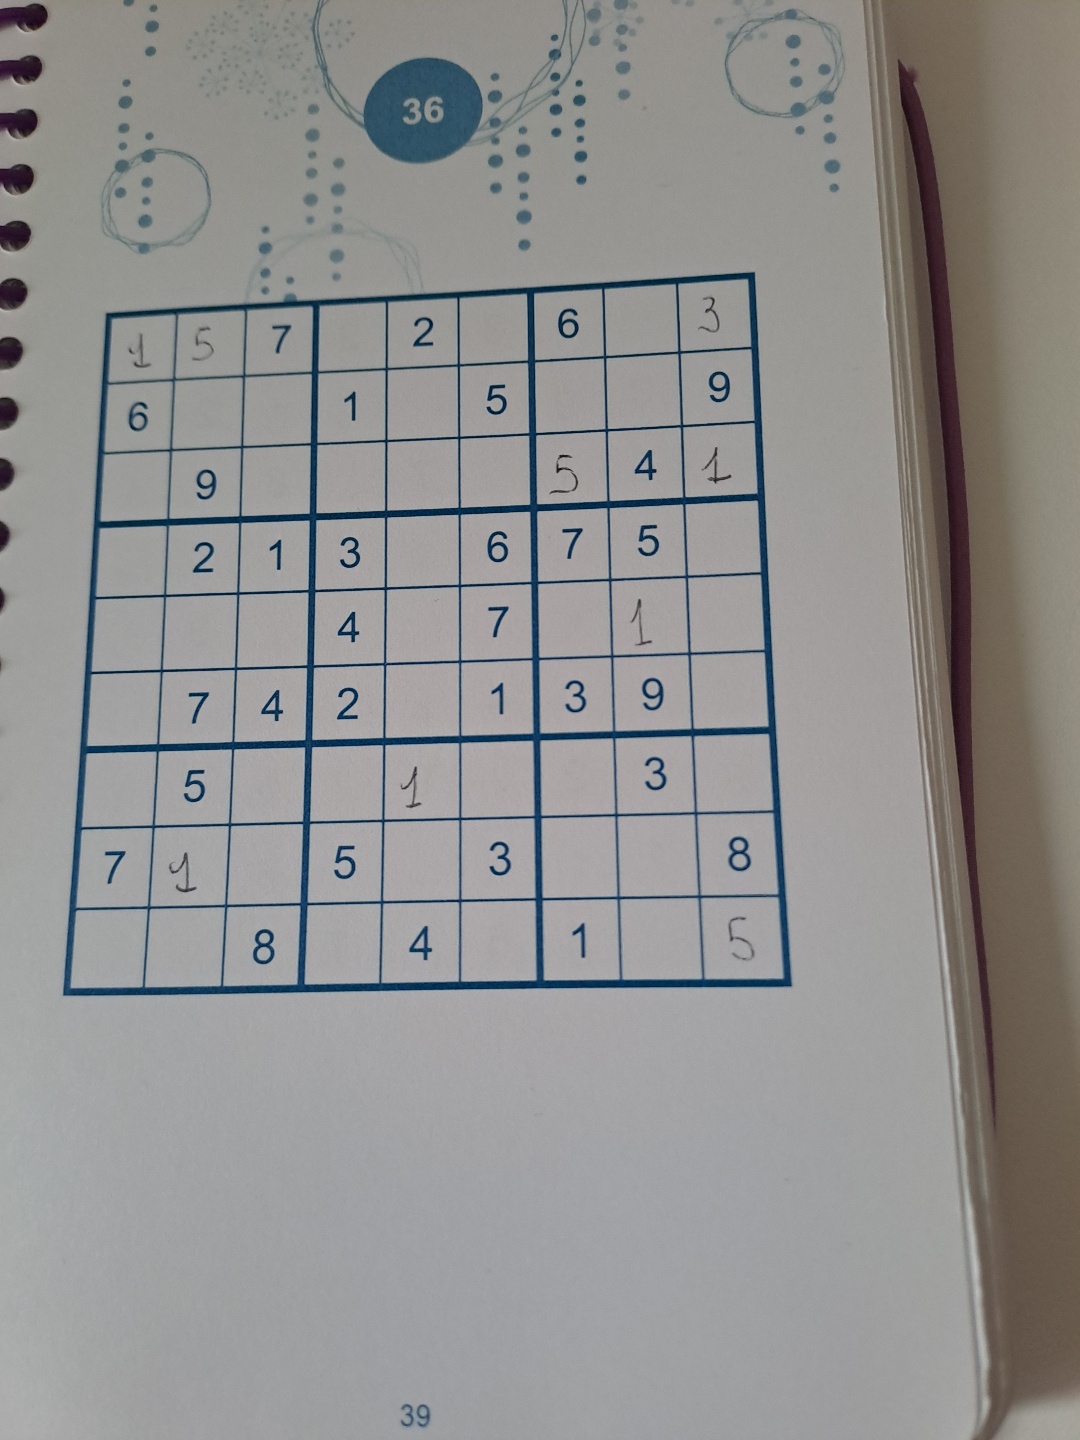 36
1 5 7 2 6 3
6 1 5 9
9 5 4 1
2 1 3 6 7 5
4 7 1
7 4 2 1 3 9
5 1 3
7 1 5 3 8
8 4 1 5
39